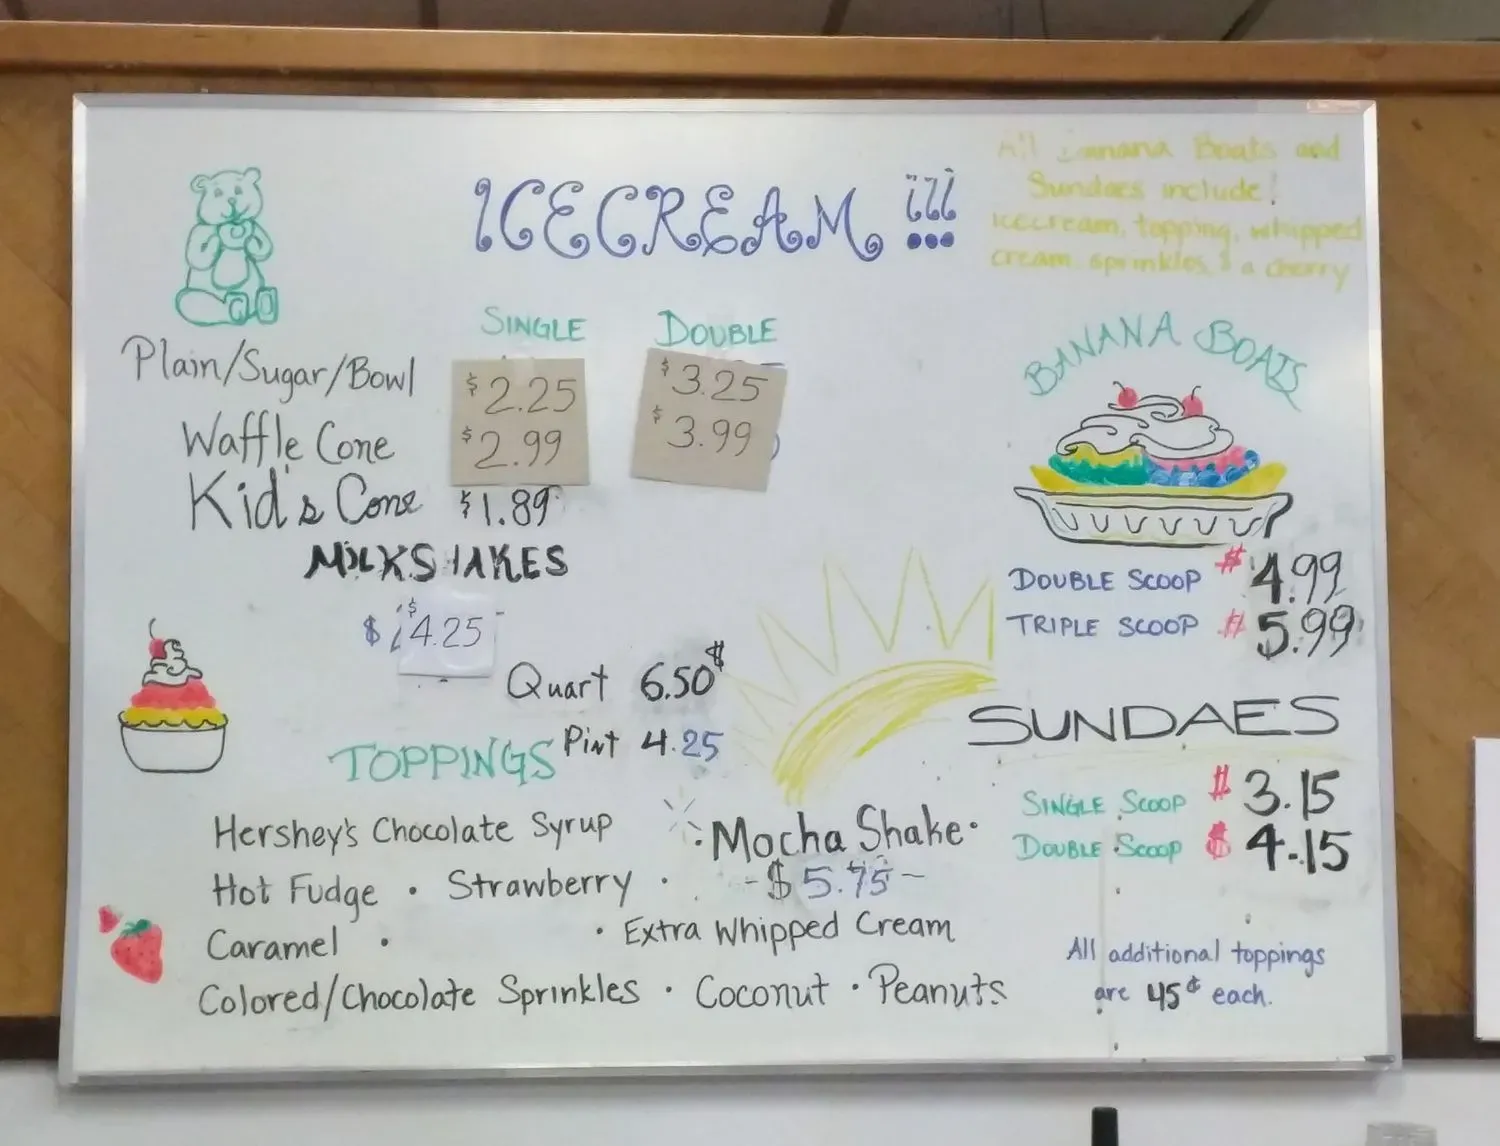 ICECREAM !!!
All Banana Boats and
Sundaes include!
icecream, topping, whipped
cream, sprinkles, & a cherry
SINGLE DOUBLE
Plain/Sugar/Bowl $2.25 $3.25
Waffle Cone $2.99 $3.99
Kid's Cone $1.89
MILKSHAKES
$ $4.25
Quart 6.50$
Pint 4.25
BANANA BOATS
DOUBLE SCOOP $4.99
TRIPLE SCOOP $5.99
SUNDAES
SINGLE SCOOP $3.15
DOUBLE SCOOP $4.15
TOPPINGS
Hershey's Chocolate Syrup
Hot Fudge • Strawberry •
Caramel • • Extra Whipped Cream
Colored/Chocolate Sprinkles • Coconut • Peanuts
• Mocha Shake •
- $5.75 -
All additional toppings
are 45¢ each.